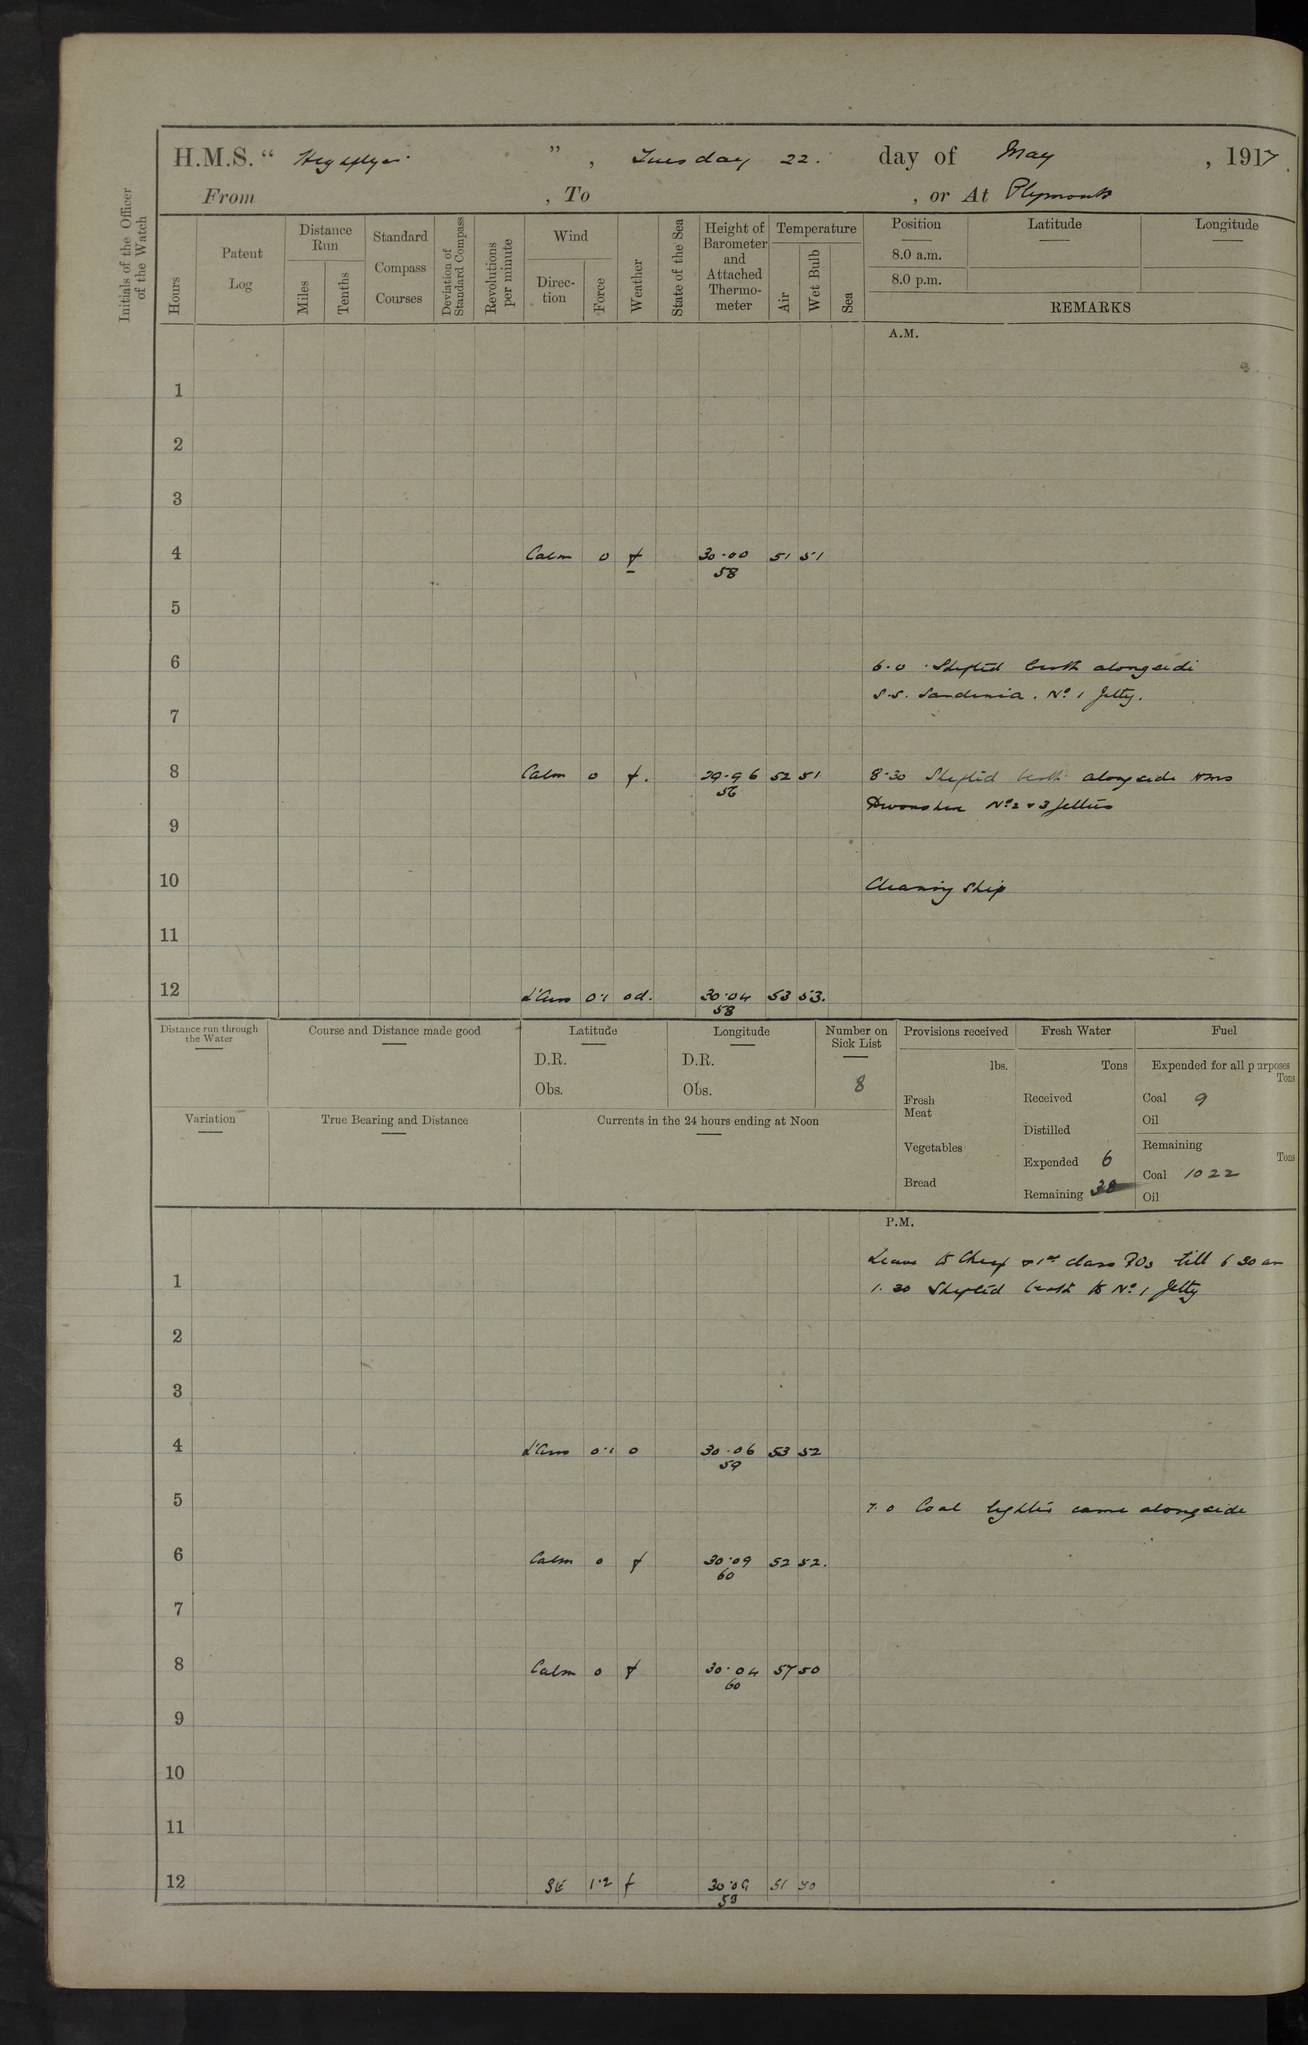 H.M.S. “ Highflyer ” , Tuesday 22. day of May , 1917.
From , To , or At Plymouth
Initials of the Officer of the Watch
Hours
Patent Log
Distance Run
Miles
Tenths
Standard Compass Courses
Deviation of Standard Compass
Revolutions per minute
Wind
Direction
Force
Weather
State of the Sea
Height of Barometer and Attached Thermometer
Temperature
Air
Wet Bulb
Sea
Position
8.0 a.m.
8.0 p.m.
Latitude
Longitude
REMARKS
A.M.
1
2
3
4 Calm 0 f 30.00 51 51
58
5
6 6.0 Shifted berth alongside
S.S. Sardinia. No. 1 Jetty.
7
8 Calm 0 f. 29.96 52 51 8.30 Shifted berth alongside HMS
56
Devonshire Nos 2 & 3 Jetties
9
10 Cleaning Ship
11
12 L'Airs 0.1 od. 30.04 53 53.
58
Distance run through the Water
Course and Distance made good
Latitude
D.R.
Obs.
Longitude
D.R.
Obs.
Number on Sick List
8
Provisions received
lbs.
Fresh Meat
Vegetables
Bread
Fresh Water
Tons
Received
Distilled
Expended 6
Remaining 38
Fuel
Expended for all purposes
Tons
Coal 9
Oil
Remaining
Tons
Coal 1022
Oil
Variation
True Bearing and Distance
Currents in the 24 hours ending at Noon
P.M.
Leave to Chief & 1st class POs till 6 30 am
1 1.30 Shifted berth to No. 1 Jetty
2
3
4 L'Airs 0.1 o 30.06 53 52
59
5 7.0 Coal lighter came alongside
6 Calm 0 f 30.09 52 52.
60
7
8 Calm 0 f 30.04 57 50
60
9
10
11
12 SE 1.2 f 30.09 51 50
59